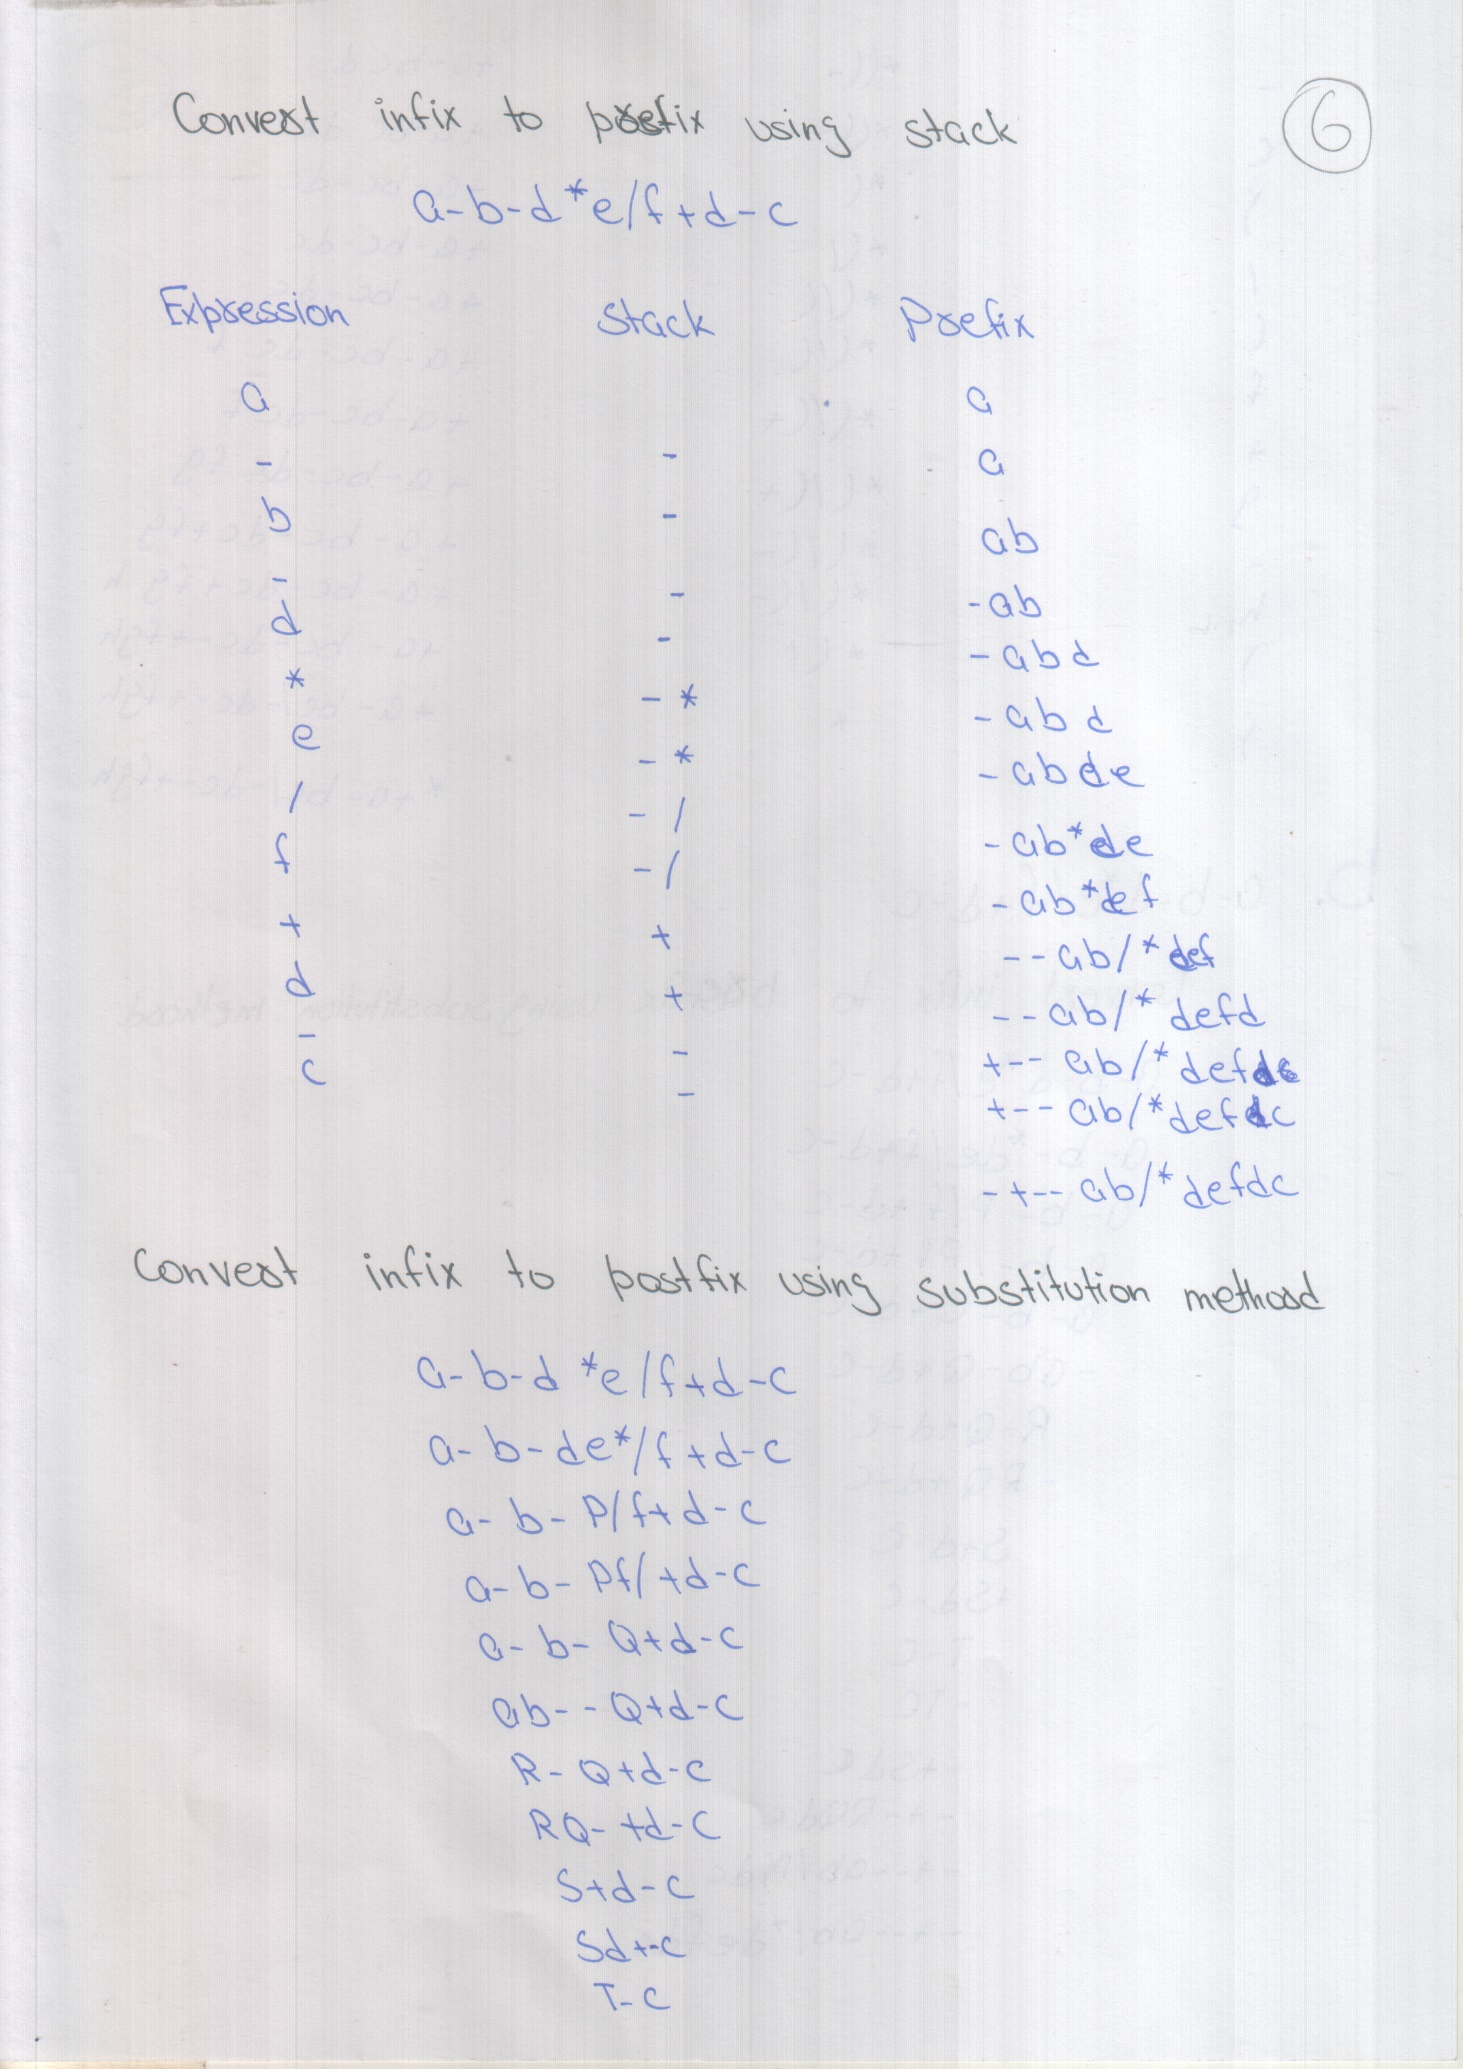 Convert infix to prefix using stack
6
a-b-d*e/f+d-c
Expression Stack Prefix
a a
- - a
b - ab
- - -ab
d - -abd
* -* -abd
e -* -abde
/ -/ -ab*de
f -/ -ab*def
+ + --ab/*def
d + --ab/*defd
- - +--ab/*defd
c - +--ab/*defdc
-+--ab/*defdc
Convert infix to postfix using substitution method
a-b-d*e/f+d-c
a-b-de*/f+d-c
a-b-P/f+d-c
a-b-Pf/+d-c
a-b-Q+d-c
ab--Q+d-c
R-Q+d-c
RQ-+d-c
S+d-c
Sd+-c
T-c